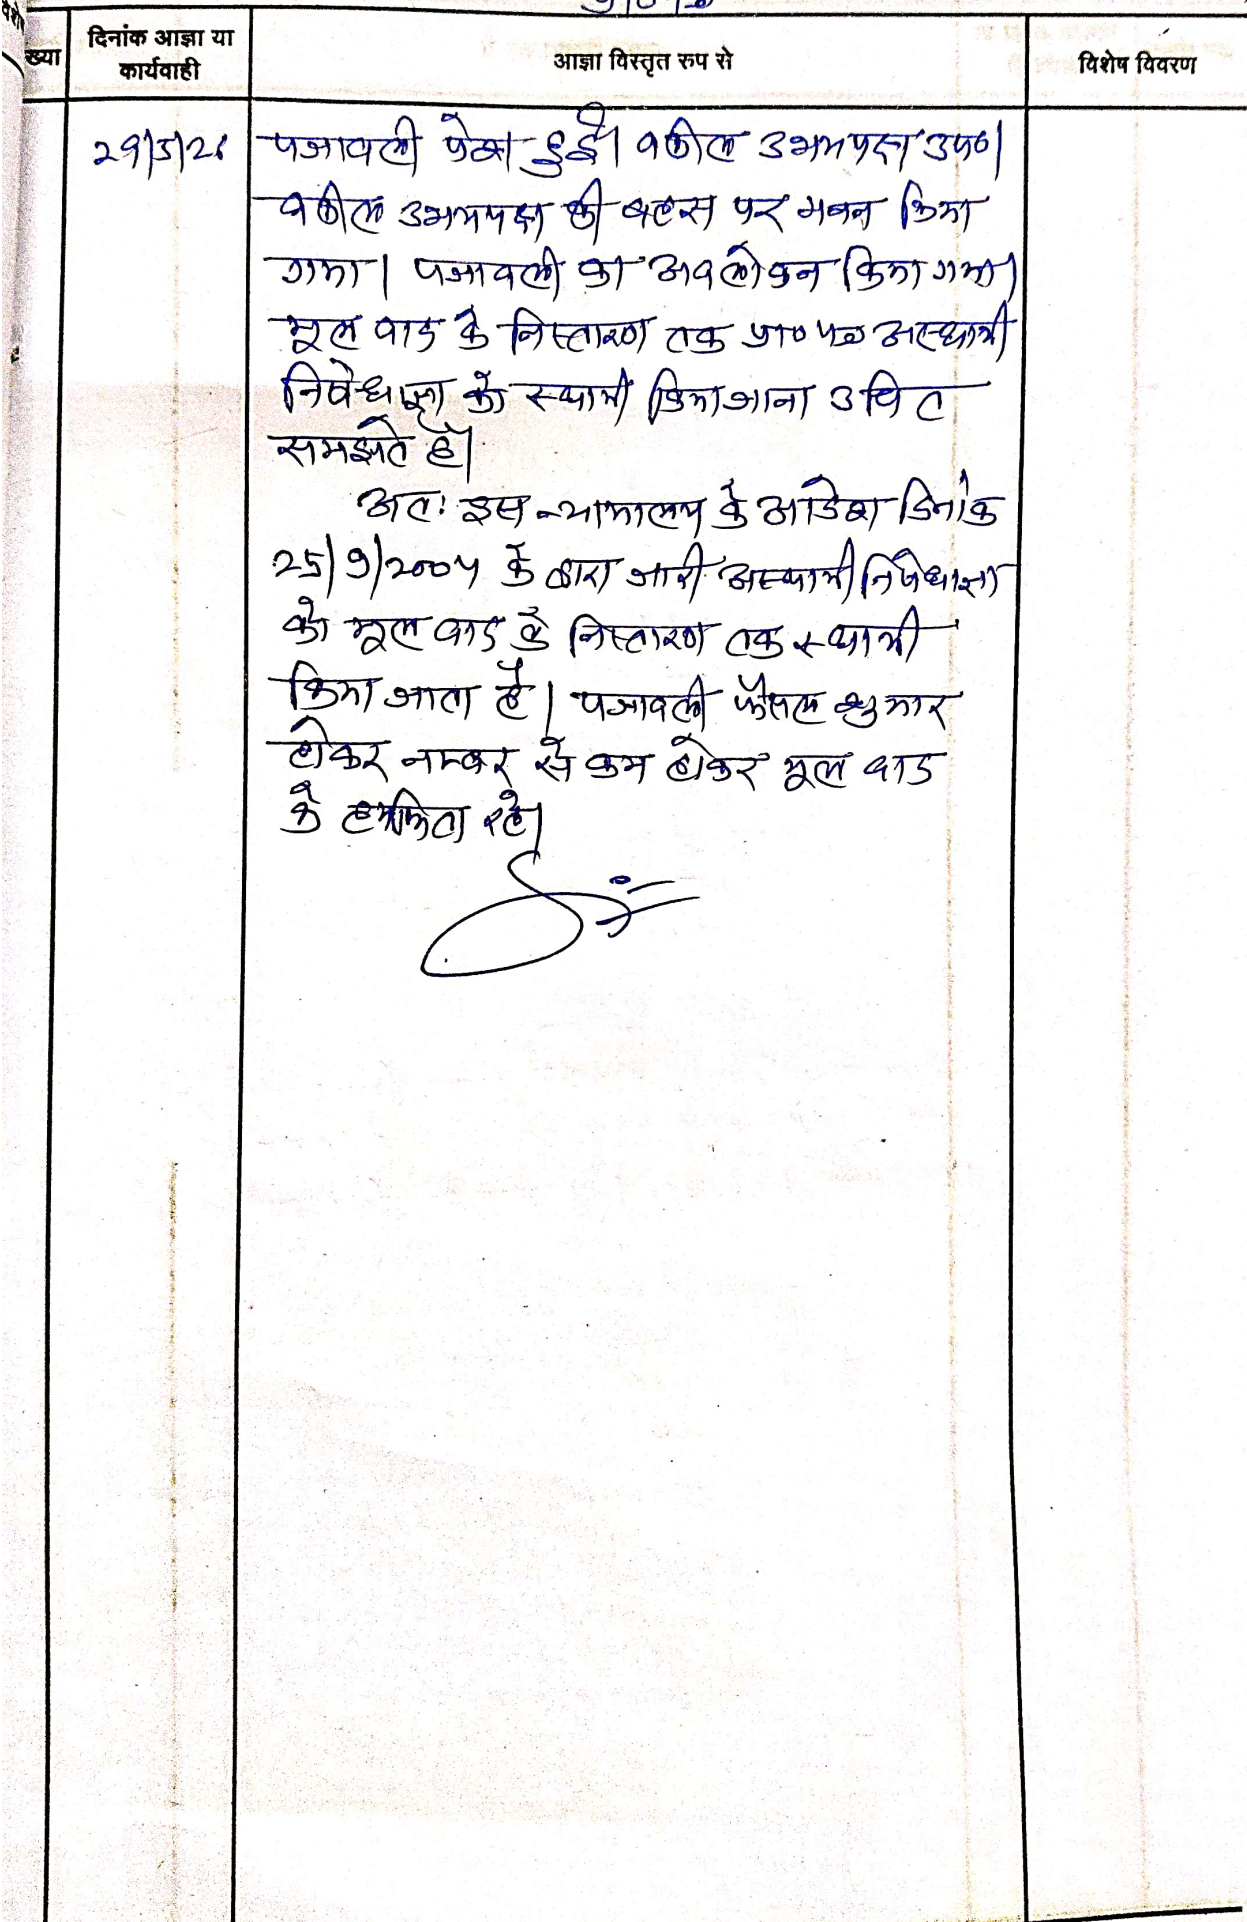 ख्या
दिनांक आज्ञा या कार्यवाही
आज्ञा विस्तृत रुप से
विशेष विवरण
29/5/26
पत्रावली पेश हुई। वकील उभयपक्ष उप०।
वकील उभयपक्ष की बहस पर मनन किया
गया। पत्रावली का अवलोकन किया गया।
मूल वाद के निस्तारण तक प्रा० पत्र अस्थायी
निषेधाज्ञा को स्थायी किया जाना उचित
समझते है।
अतः इस न्यायालय के आदेश दिनांक
25/9/2004 के द्वारा जारी अस्थायी निषेधाज्ञा
को मूल वाद के निस्तारण तक स्थायी
किया जाता है। पत्रावली फैसल शुमार
होकर नम्बर से कम होकर मूल वाद
के रहे।